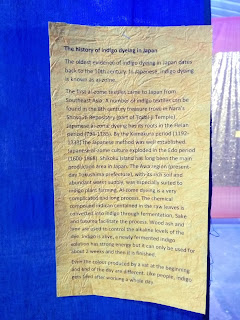 The history of indigo dyeing in Japan
The oldest evidence of indigo dyeing in Japan dates
back to the 10th century. In Japanese, indigo dyeing
is known as ai-zome.
The first ai-zome textiles came to Japan from
Southeast Asia. A number of indigo textiles can be
found in the 8th century treasure trove in Nara's
Shōsōin Repository (part of Tōdai-ji Temple).
Japanese ai-zome dyeing has its roots in the Heian
period (794-1185). By the Kamakura period (1192-
1333) the Japanese method was well established.
Japanese ai-zome culture exploded in the Edo period
(1600-1868). Shikoku Island has long been the main
production area in Japan. The Awa region (present-
day Tokushima prefecture), with its rich soil and
abundant water supply, was especially suited to
indigo plant farming. Ai-zome dyeing is a very
complicated and long process. The chemical
compound indican contained in the raw leaves is
converted into indigo through fermentation. Sake
and fusuma facilitate the process. Wood ash and
lime are used to control the alkaline levels of the
dye. Indigo is alive, a newly fermented indigo
solution has strong energy but it can only be used for
about 2 weeks and then it is finished.
Even the colors produced by a vat at the beginning
and end of the day are different. Like people, indigo
gets tired after working a whole day.